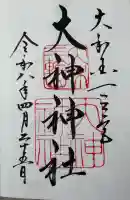 大和國一之宮
大神神社
令和八年四月二十五日